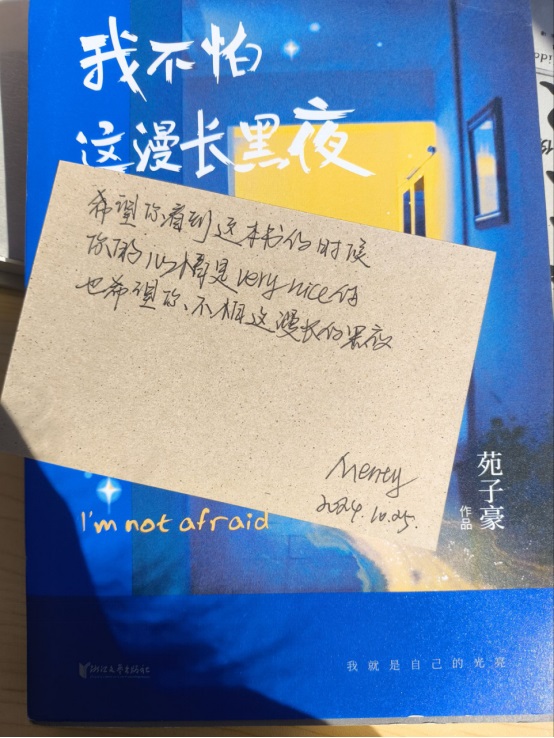 我不怕
这漫长黑夜
希望你看到这本书的时候
你的心情是very nice的
也希望你、不怕这漫长的黑夜
2024.10.25.
I'm not afraid
苑子豪
作品
浙江文艺出版社
我就是自己的光亮